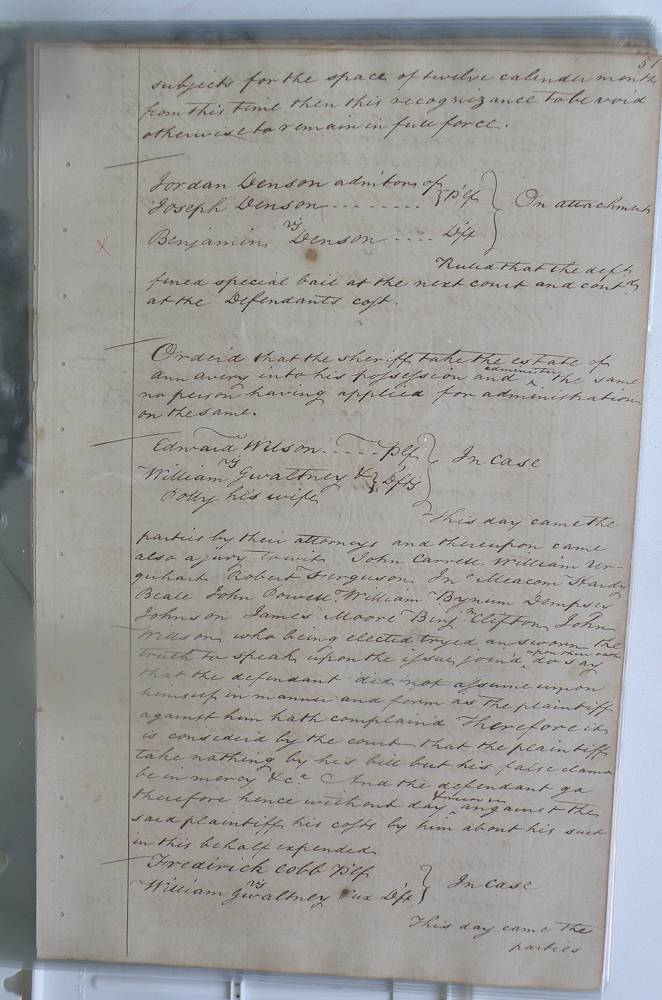 51
subjects for the space of twelve calender month
from this time then this recognizance to be void
otherwise to remain in full force.
Jordan Denson admitors of
Joseph Denson - - - - - - - - } Plf } On attachment
vs
Benjamin Denson - - - - Dft
Ruled that the deft
fined special bail at the next court and contd
at the Defendants cost.
Orderd that the sheriff take the estate of
administer
ann avery into his possession and ^ the same
no person having applied for administration
on the same.
Edward Wilson - - - - - plf } In Case
vs
William Gwaltney & } Dfts
Polly his wife
This day came the
parties by their attorneys and thereupon came
also a jury to wit John Carrell. William Ur-
quhart Robert Ferguson Jno Meacom Hardy
Beale John Powell. William Bynum Dempsey
Johnson James Moore Benjn Clifton John
Willson who being elected tryed an sworn the
upon their oath
truth to speak upon the issue joind ^ do say
that the defendant did not assume upon
himself in manner and form as the plaintiff
against him hath complaind Therefore it
is considerd by the court that the plaintiff
take nothing by his bill but his false clamor
be in mercy &ca And the defendant go
therefore hence without day ^ against the
said plaintiff his costs by him about his suit
in this behalf expended
Fredirick Cobb Plf } In Case
vs
William Gwaltney ux Dft
This day came the
parties